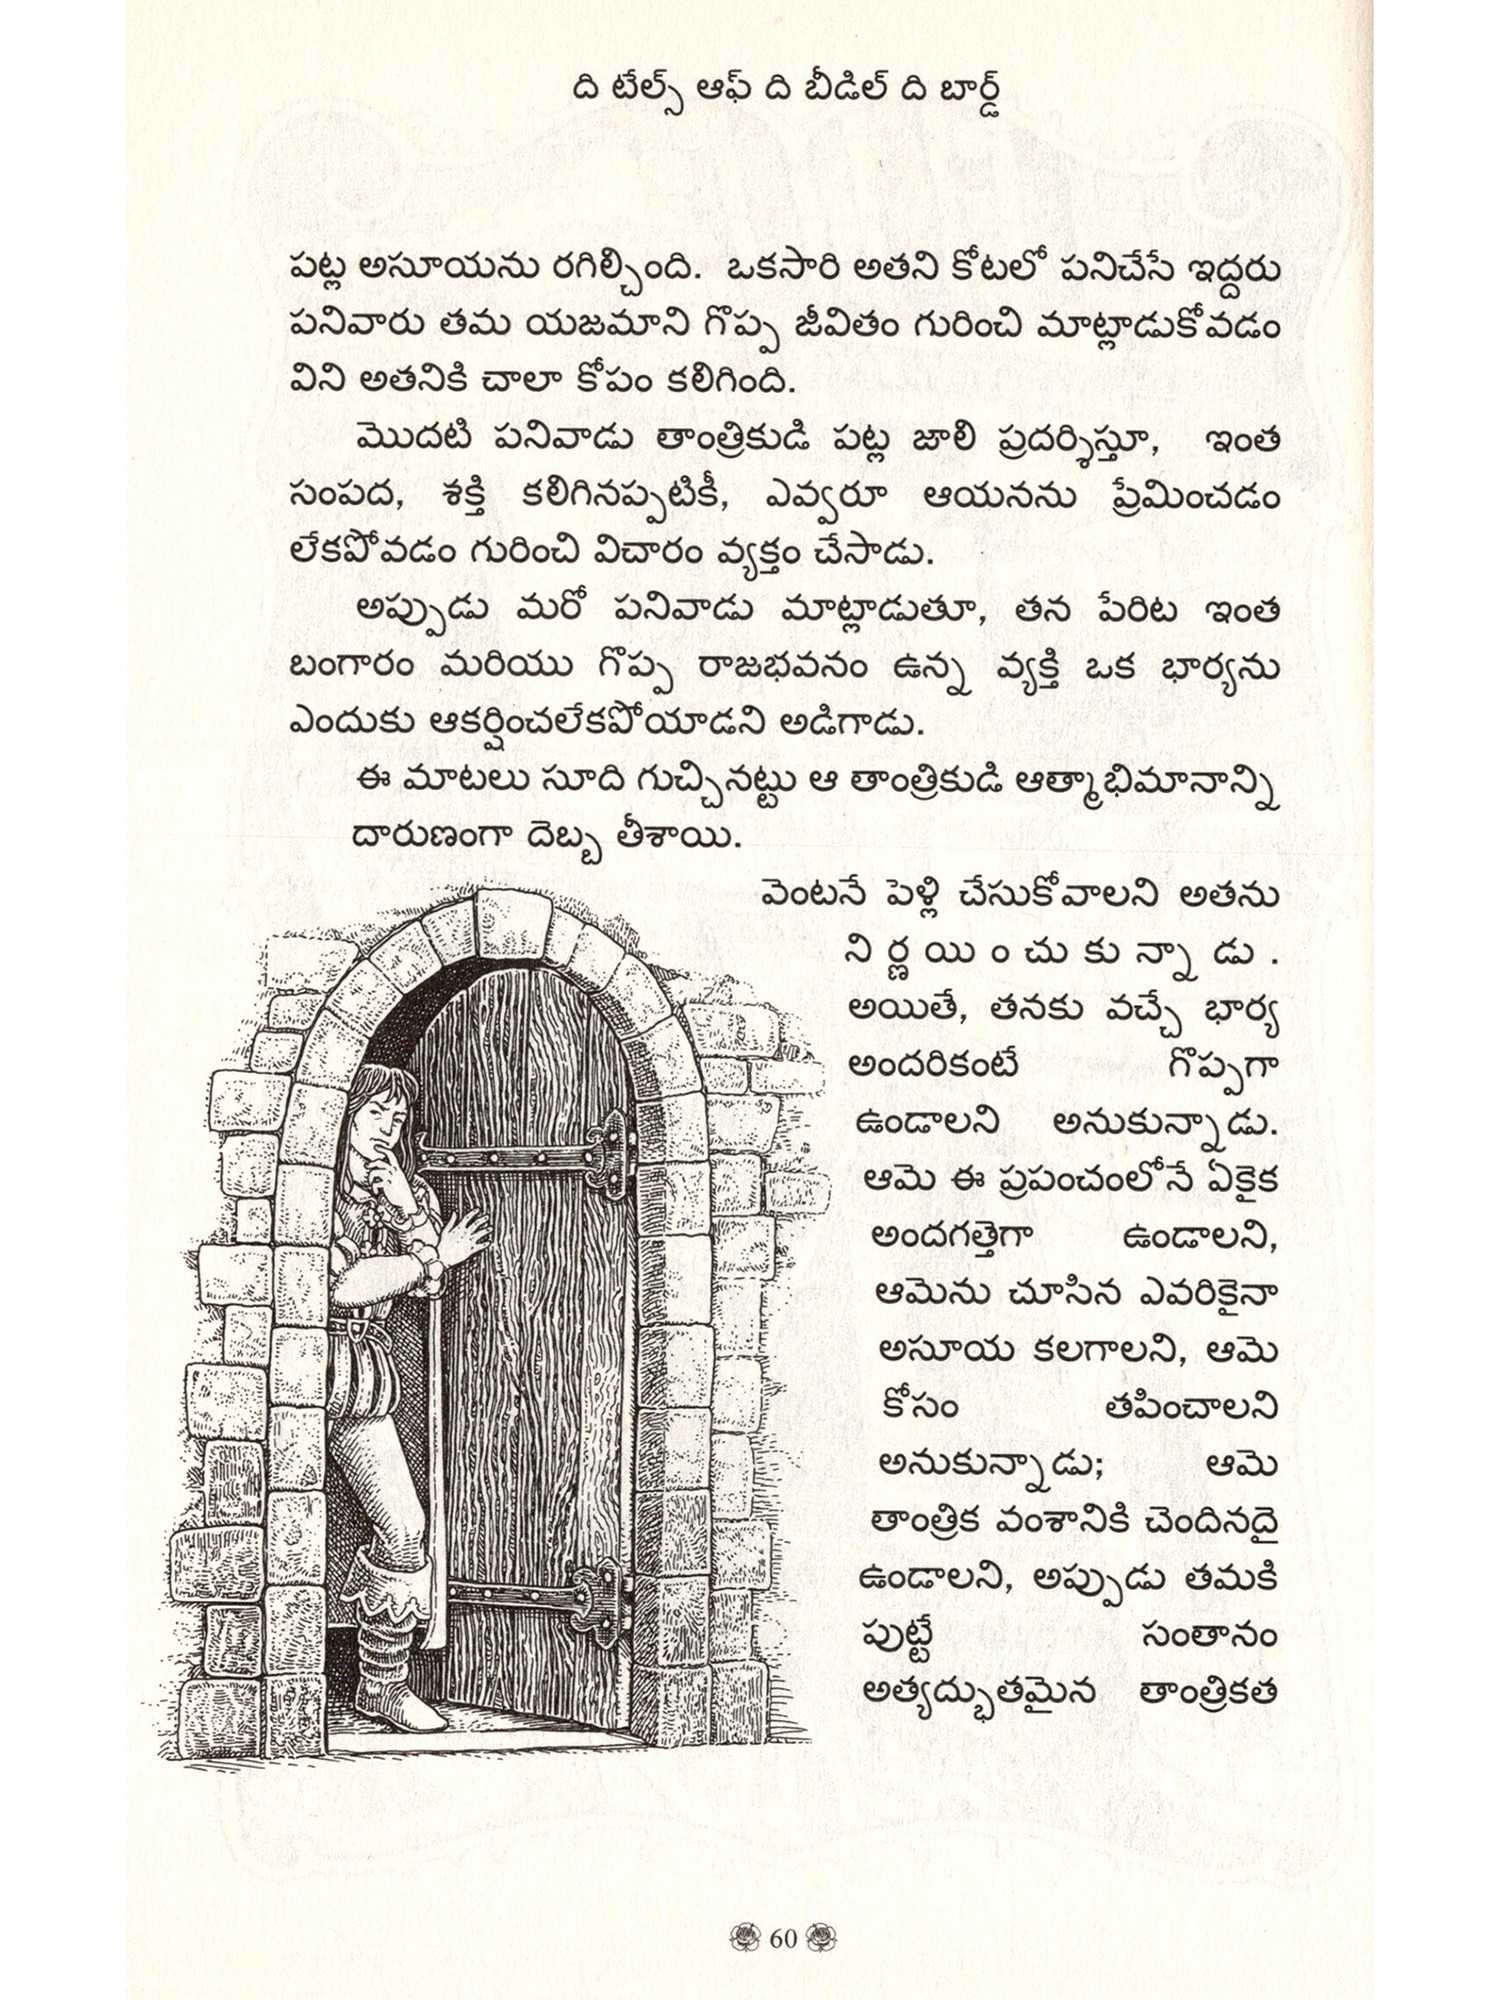 ది టేల్స్ ఆఫ్ ది బీడిల్ ది బార్డ్
పట్ల అసూయను రగిల్చింది. ఒకసారి అతని కోటలో పనిచేసే ఇద్దరు
పనివారు తమ యజమాని గొప్ప జీవితం గురించి మాట్లాడుకోవడం
విని అతనికి చాలా కోపం కలిగింది.
మొదటి పనివాడు తాంత్రికుడి పట్ల జాలి ప్రదర్శిస్తూ, ఇంత
సంపద, శక్తి కలిగినప్పటికీ, ఎవ్వరూ ఆయనను ప్రేమించడం
లేకపోవడం గురించి విచారం వ్యక్తం చేసాడు.
అప్పుడు మరో పనివాడు మాట్లాడుతూ, తన పేరిట ఇంత
బంగారం మరియు గొప్ప రాజభవనం ఉన్న వ్యక్తి ఒక భార్యను
ఎందుకు ఆకర్షించలేకపోయాడని అడిగాడు.
ఈ మాటలు సూది గుచ్చినట్టు ఆ తాంత్రికుడి ఆత్మాభిమానాన్ని
దారుణంగా దెబ్బ తీశాయి.
వెంటనే పెళ్లి చేసుకోవాలని అతను
నిర్ణయించుకున్నాడు.
అయితే, తనకు వచ్చే భార్య
అందరికంటే గొప్పగా
ఉండాలని అనుకున్నాడు.
ఆమె ఈ ప్రపంచంలోనే ఏకైక
అందగత్తెగా ఉండాలని,
ఆమెను చూసిన ఎవరికైనా
అసూయ కలగాలని, ఆమె
కోసం తపించాలని
అనుకున్నాడు; ఆమె
తాంత్రిక వంశానికి చెందినదై
ఉండాలని, అప్పుడు తమకి
పుట్టే సంతానం
అత్యద్భుతమైన తాంత్రికత
60